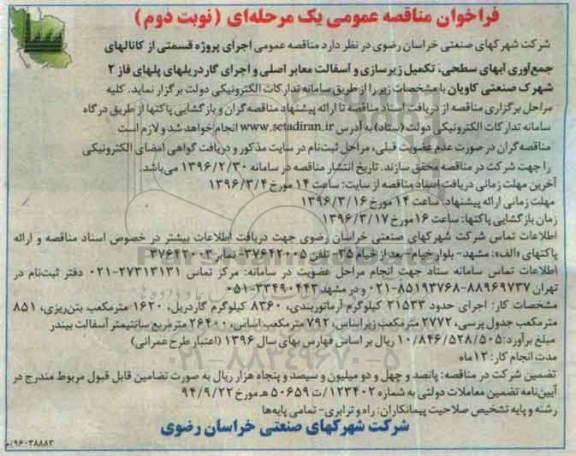 فراخوان مناقصه عمومی یک مرحله‌ای (نوبت دوم)
شرکت شهرکهای صنعتی خراسان رضوی در نظر دارد مناقصه عمومی اجرای پروژه قسمتی از کانالهای
جمع‌آوری آبهای سطحی، تکمیل زیرسازی و آسفالت معابر اصلی و اجرای گاردریلهای پلهای فاز ۲
شهرک صنعتی کاویان با مشخصات زیر را از طریق سامانه تدارکات الکترونیکی دولت برگزار نماید. کلیه
مراحل برگزاری مناقصه از دریافت اسناد مناقصه تا ارائه پیشنهاد مناقصه‌گران و بازگشایی پاکتها از طریق درگاه
سامانه تدارکات الکترونیکی دولت (ستاد) به آدرس www.setadiran.ir انجام خواهد شد و لازم است
مناقصه‌گران در صورت عدم عضویت قبلی، مراحل ثبت‌نام در سایت مذکور و دریافت گواهی امضای الکترونیکی
را جهت شرکت در مناقصه محقق سازند. تاریخ انتشار مناقصه در سامانه ۱۳۹۶/۲/۳۰ می‌باشد.
آخرین مهلت زمانی دریافت اسناد مناقصه از سایت: ساعت ۱۴ مورخ ۱۳۹۶/۳/۴
مهلت زمانی ارائه پیشنهاد: ساعت ۱۴ مورخ ۱۳۹۶/۳/۱۶
زمان بازگشایی پاکتها: ساعت ۱۶ مورخ ۱۳۹۶/۳/۱۷
اطلاعات تماس شرکت شهرکهای صنعتی خراسان رضوی جهت دریافت اطلاعات بیشتر در خصوص اسناد مناقصه و ارائه
پاکتهای «الف»: مشهد- بلوار خیام- بعد از خیام ۳۵- تلفن ۳۷۶۴۲۰۰۵- نمابر
اطلاعات تماس سامانه ستاد جهت انجام مراحل عضویت در سامانه: مرکز تماس ۲۷۳۱۳۱۳۱-۰۲۱ دفتر ثبت‌نام در
تهران ۸۸۹۶۹۷۳۷-۸۵۱۹۳۷۶۸-۰۲۱ و در مشهد ۳۳۴۹۰۴۴۳-۰۵۱
مشخصات کار: اجرای حدود ۲۱۵۳۳ کیلوگرم آرماتوربندی، ۸۳۶۰ کیلوگرم گاردریل، ۱۶۲۰ مترمکعب بتن‌ریزی، ۸۵۱
مترمکعب جدول پرسی، ۲۷۷۲ مترمکعب زیراساس، ۷۹۲ مترمکعب اساس، ۲۶۴۰۰ مترمربع سانتیمتر آسفالت بیندر
مبلغ برآورد: ۱۰/۸۴۶/۵۲۸/۵۰۵ ریال بر اساس فهارس بهای سال ۱۳۹۶ (اعتبار طرح عمرانی)
مدت انجام کار: ۱۲ ماه
تضمین شرکت در مناقصه: پانصد و چهل و دو میلیون و سیصد و پنجاه هزار ریال به صورت تضامین قابل قبول مربوط مندرج در
آیین‌نامه تضمین معاملات دولتی به شماره ۱۲۳۴۰۲/ت ۵۰۶۵۹ هـ مورخ ۹۴/۹/۲۲
رشته و پایه تشخیص صلاحیت پیمانکاران: راه و ترابری- تمامی پایه‌ها
شرکت شهرکهای صنعتی خراسان رضوی
۹۶۰۳۸۸۸۳/م
۰۲۱-۸۸۳۴۹۶۷۰-۵